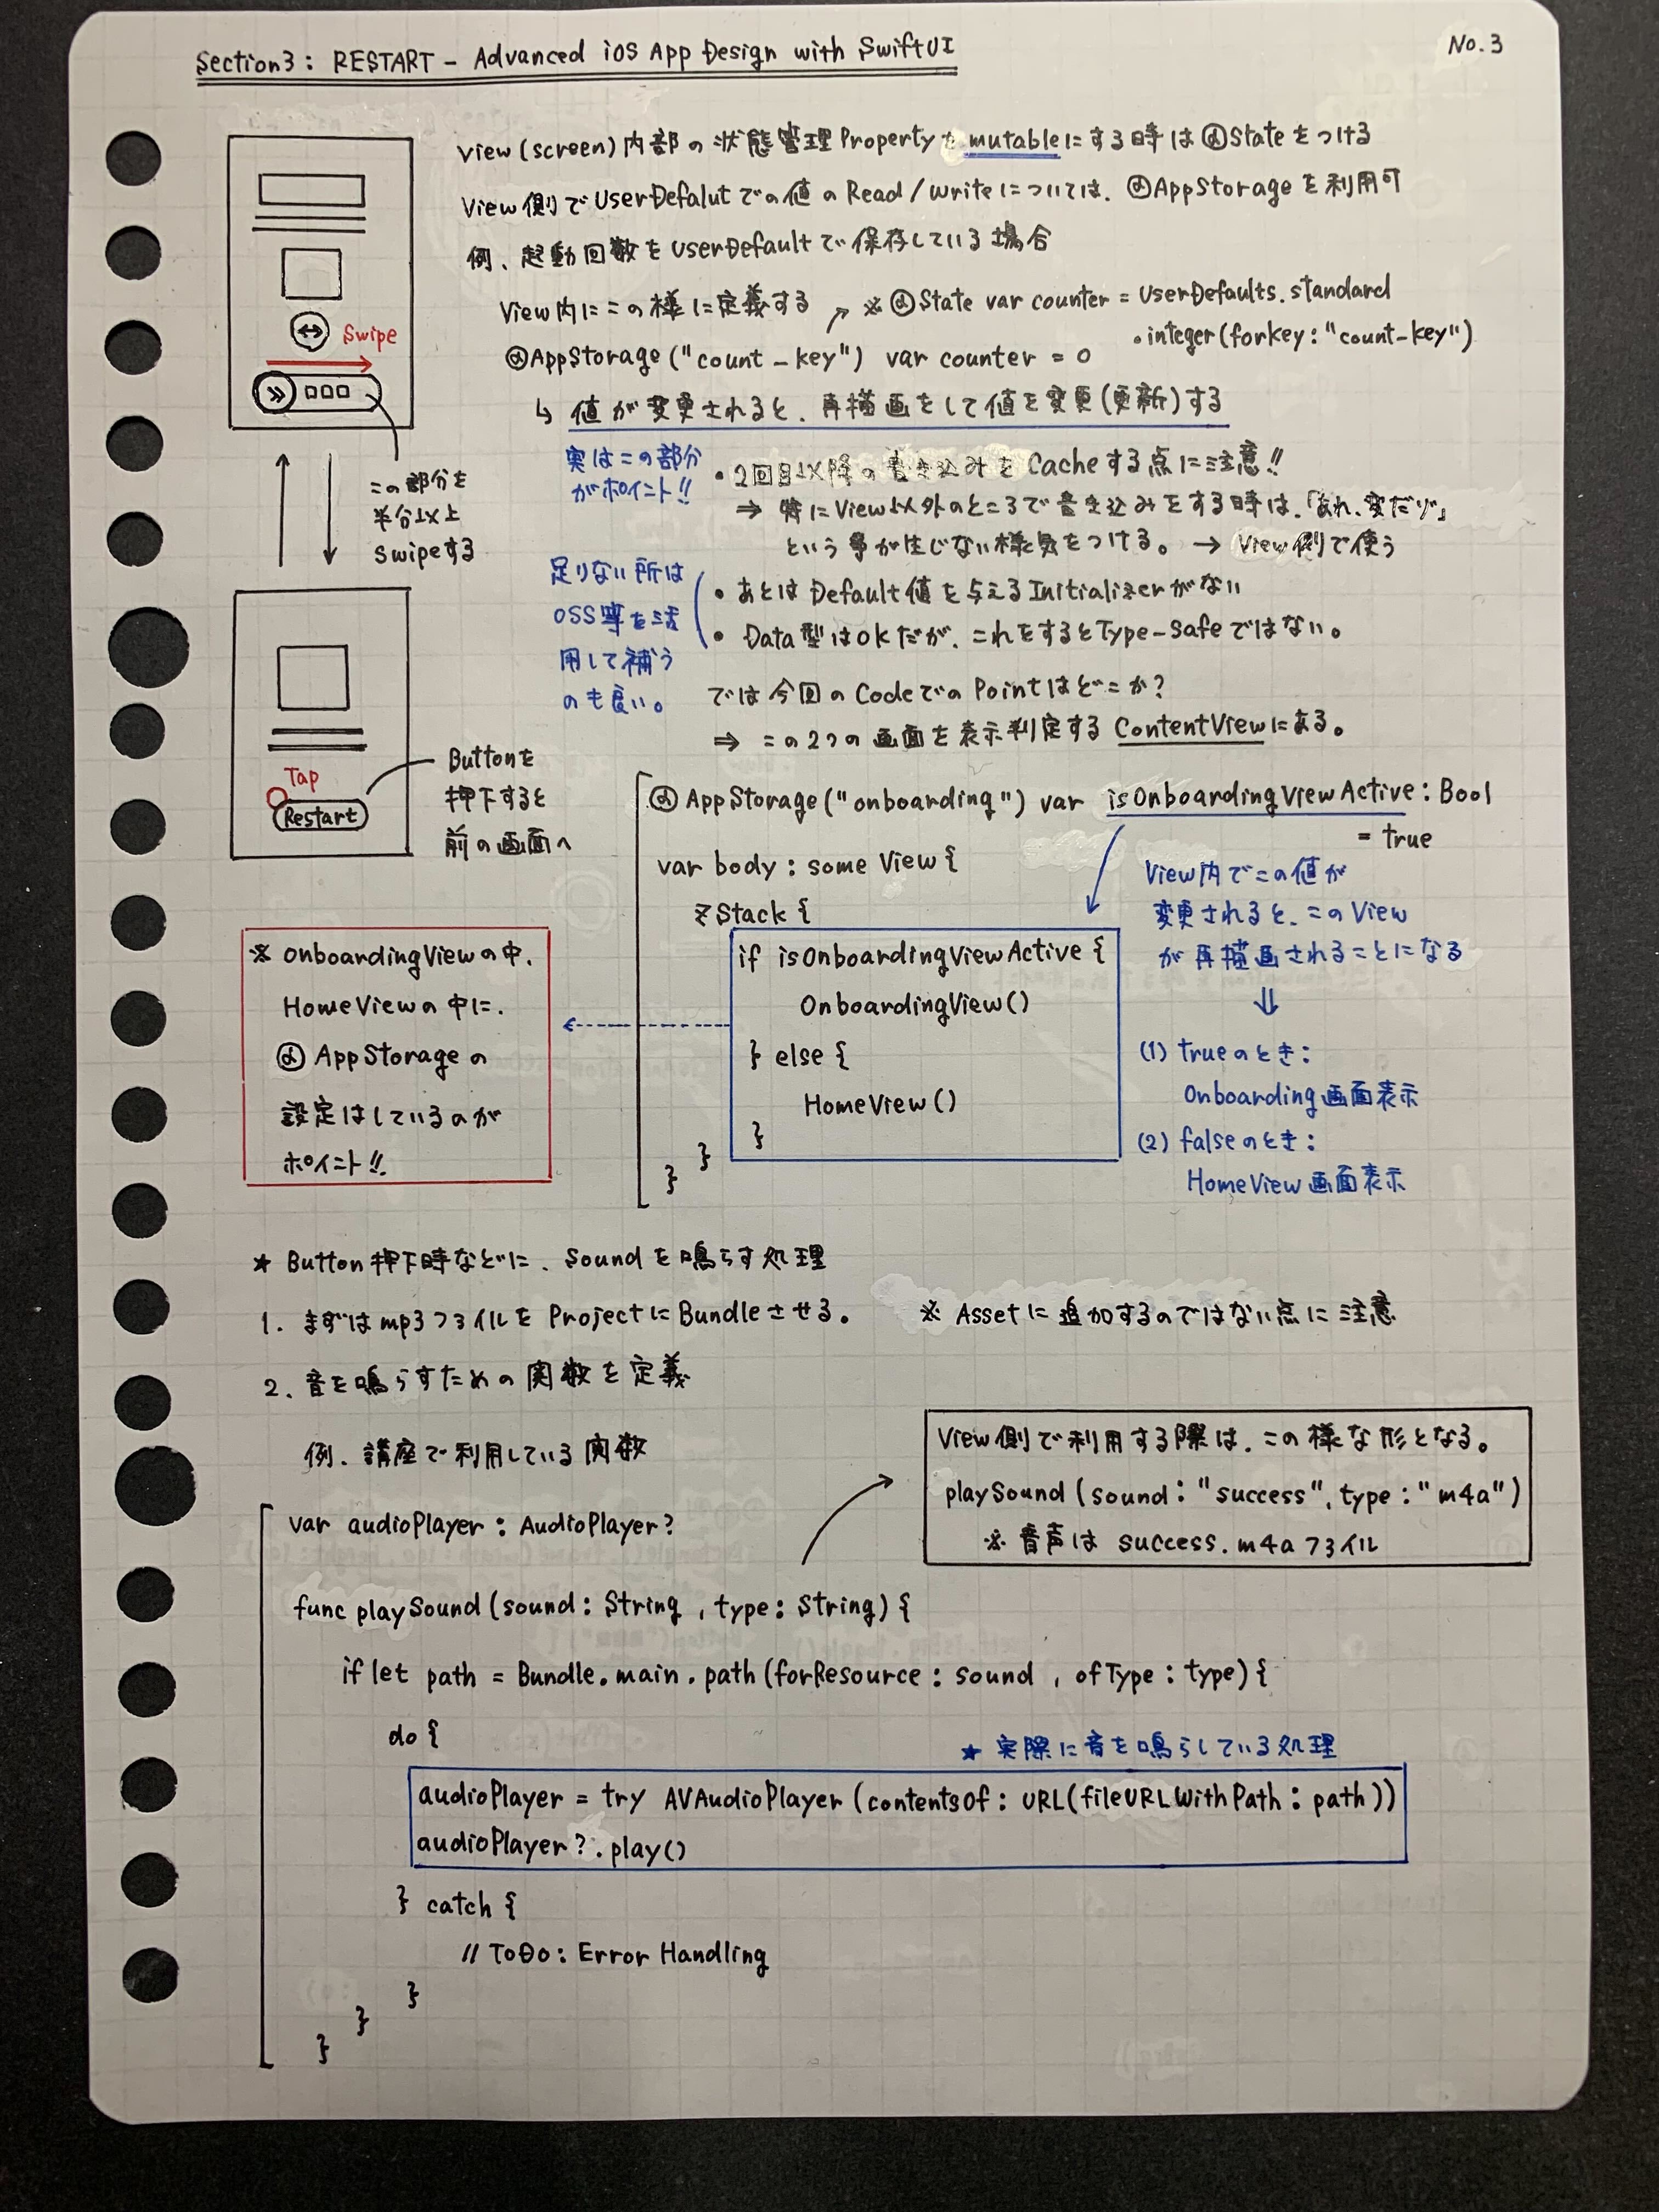 Section3: RESTART - Advanced iOS App Design with SwiftUI
No.3
View(screen)内部の状態管理Propertyをmutableにする時は@Stateをつける
View側でUserDefalutでの値のRead/Writeについては、@AppStorageを利用可
例、起動回数をUserDefaultで保存している場合
View内にこの様に定義する
※@State var counter = UserDefaults.standard
.integer(forkey:"count-key")
@AppStorage("count-key") var counter = 0
↳ 値が変更されると、再描画をして値を変更(更新)する
Swipe
この部分を
半分以上
Swipeする
実はこの部分
がポイント!!
・2回目以降の書き込みをCacheする点に注意!!
⇒ 特にView以外のところで書き込みをする時は、「あれ、変だゾ」
という事が生じない様気をつける。→ View側で使う
足りない所は
OSS等を活
用して補う
のも良い。
・あとはDefault値を与えるInitializerがない
・Data型はOKだが、これをするとType-Safeではない。
では今回のCodeでのPointはどこか?
⇒ この2つの画面を表示判定するContentViewにある。
Tap
Restart
Buttonを
押下すると
前の画面へ
@AppStorage("onboarding") var isOnboardingViewActive: Bool
= true
var body: some View {
ZStack {
if isOnboardingViewActive {
OnboardingView()
} else {
HomeView()
}
}
}
View内でこの値が
変更されると、このView
が再描画されることになる
⇓
(1) trueのとき:
Onboarding画面表示
(2) falseのとき:
HomeView画面表示
※ OnboardingViewの中、
HomeViewの中に、
@AppStorageの
設定はしているのが
ポイント!!
★ Button押下時などに、Soundを鳴らす処理
1. まずはmp3ファイルをProjectにBundleさせる。 ※ Assetに追加するのではない点に注意
2. 音を鳴らすための関数を定義
例、講座で利用している関数
View側で利用する際は、この様な形となる。
playSound(sound: "success", type: "m4a")
※ 音声は success.m4aファイル
var audioPlayer: AudioPlayer?
func playSound(sound: String, type: String) {
if let path = Bundle.main.path(forResource: sound, ofType: type) {
do {
★ 実際に音を鳴らしている処理
audioPlayer = try AVAudioPlayer(contentsOf: URL(fileURLWithPath: path))
audioPlayer?.play()
} catch {
// ToDo: Error Handling
}
}
}